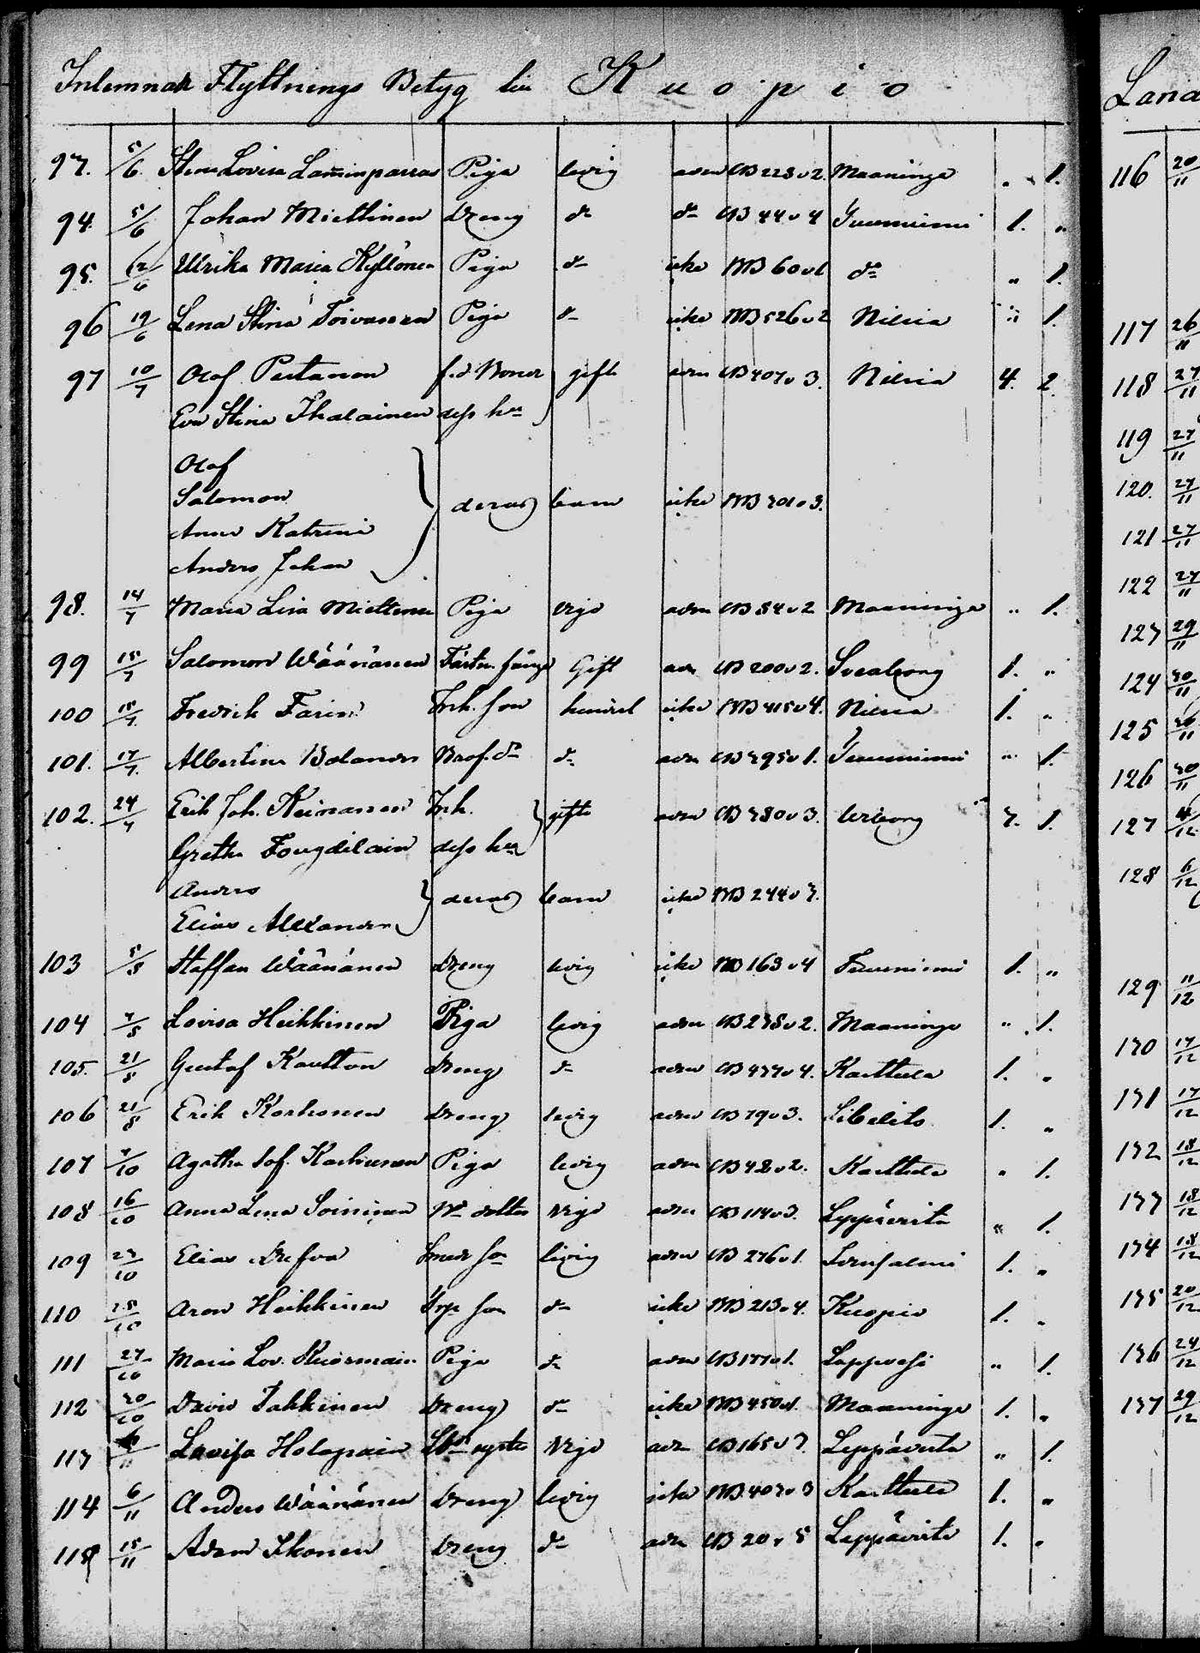 Inlemnade Flyttnings Betyg till Kuopio
93. 5/6. Stina Lovisa Laminparras Piga ledig adm CB 223 v 2. Maaninga „ 1.
94. 5/6 Johan Miettinen Dreng do do CB 44 v 4 Tuusniemi 1. „
95. 12/6 Ulrika Maria Kyllönen Piga do icke MB 60 v 1 do „ 1.
96 19/6 Lena Stina Toivanen Piga do icke MB 526 v 2 Nilsiä „ 1.
97 10/7 Olof Partanen f.d. Bonde gifte adm CB 407 v 3. Nilsiä 4. 2.
Eva Stina Ihalainen dess hu
Olof
Salomon
deras barn icke MB 301 v 3.
Anna Katrina
Anders Johan
98. 14/7 Maria Lisa Miettinen Piga ledig adm CB 54 v 2 Maaninga „ 1.
99 15/7 Salomon Wäänänen Gift adm CB 200 v 2. Sveaborg 1. „
100 15/7 Fredrik Farin Inh. son icke MB 415 v 4. Nilsiä 1. „
101. 17/7 Albertina Bolander do adm CB 395 v 1. Tuusniemi „ 1.
102. 24/7 Erik Joh. Keinänen Inh. gifte adm CB 380 v 3. Wiborg 3. 1.
Gretha dess hu
Anders
deras barn icke MB 244 v 3.
Elias Alexander
103 5/8 Staffan Wäänänen Dreng ledig icke MB 163 v 4 Tuusniemi 1. „
104 7/8 Lovisa Heikkinen Piga ledig adm CB 238 v 2. Maaninga „ 1.
105. 21/8 Gustaf Kautton Dreng do adm CB 437 v 4. Karttula 1. „
106 21/8 Erik Korhonen Dreng ledig adm CB 79 v 3. Libelits 1. „
107 7/10 Agatha Sof. Karhunen Piga ledig adm CB 42 v 2. Karttula „ 1.
108 16/10 Anna Lena Soininen dotter ledig adm CB 114 v 3. Leppävirta „ 1.
109 23/10 Elias Drefva son ledig adm CB 276 v 1. Idensalmi 1. „
110 25/10 Aron Heikkinen Trp son do icke MB 213 v 4. Kuopio 1. „
111 27/10 Maria Lov. Kuosmain Piga do adm CB 177 v 1. Lappvesi „ 1.
112 30/10 David Takkinen Dreng do icke MB 450 v 1. Maaninga 1. „
113 6/11 Lovisa Holopain ledig adm CB 165 v 3. Leppävirta „ 1.
114 6/11 Anders Wäänänen Dreng ledig icke MB 403 v 3 Karttula 1. „
115 15/11 Adam Ikonen Dreng do adm CB 20 v 5 Leppävirta 1. „
Land
116 20/11
117 26/11
118 27/11
119 27/11
120. 27/11
121 27/11
122 27/11
123 29/11
124 30/11
125 30/11
126 30/11
127 4/12
128 6/12
129 11/12
130 17/12
131 17/12
132 18/12
133 18/12
134 18/12
135 20/12
136 24/12
137 29/12